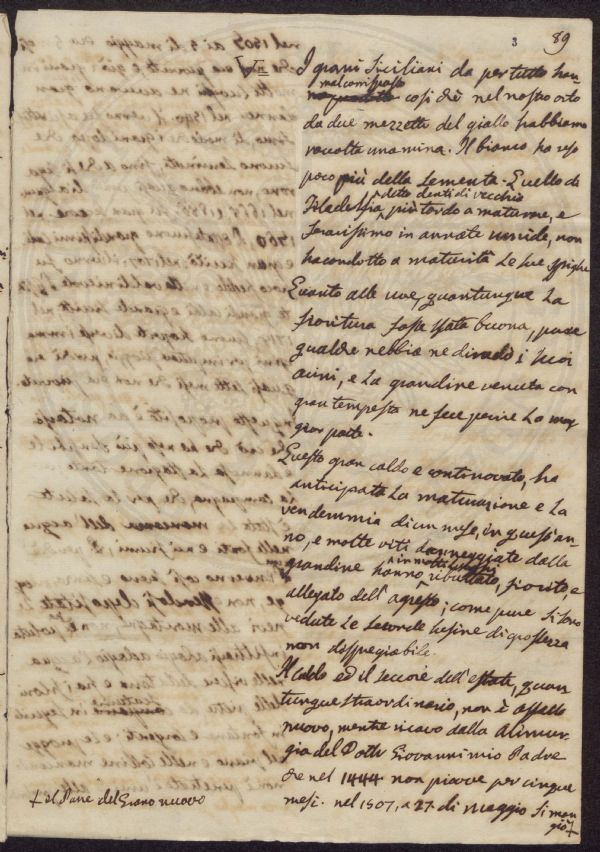 3 89
VII
I grani Siciliani da per tutto han-
mal corrisposto
così che nel nostro orto
da due mezzette del giallo habbiamo
raccolta una mina. Il bianco ha reso
poco più della sementa. Quello di
Filadelfia, detto denti di vecchio
più tardo a maturare, e
feracissimo in annate umide, non
ha condotto a maturità le sue spighe
Quanto alle uve, quantunque la
fioritura fosse stata buona, pure
qualche nebbia ne diradò i suoi
acini, e la grandine venuta con
gran tempesta ne fece perire la mag-
gior parte.
Questo gran caldo e continovato, ha
anticipata la maturazione e la
vendemmia di un mese, in quest'an-
no, e molte viti danneggiate dalla
grandine hanno in molti luoghi ributtato, fiorito, e
allegato dell'agresto; come pure si sono
vedute le seconde susine di grossezza
non dispregiabile.
Il caldo ed il seccore dell'estate, quan-
tunque straordinario, non è affatto
nuovo, mentre ricavo dalla Alimur-
gia del Dottr Giovanni mio Padre
che nel 1444 non piovve per cinque
mesi. nel 1507, a 27 di maggio si man-
giò +
+ il Pane del Grano nuovo